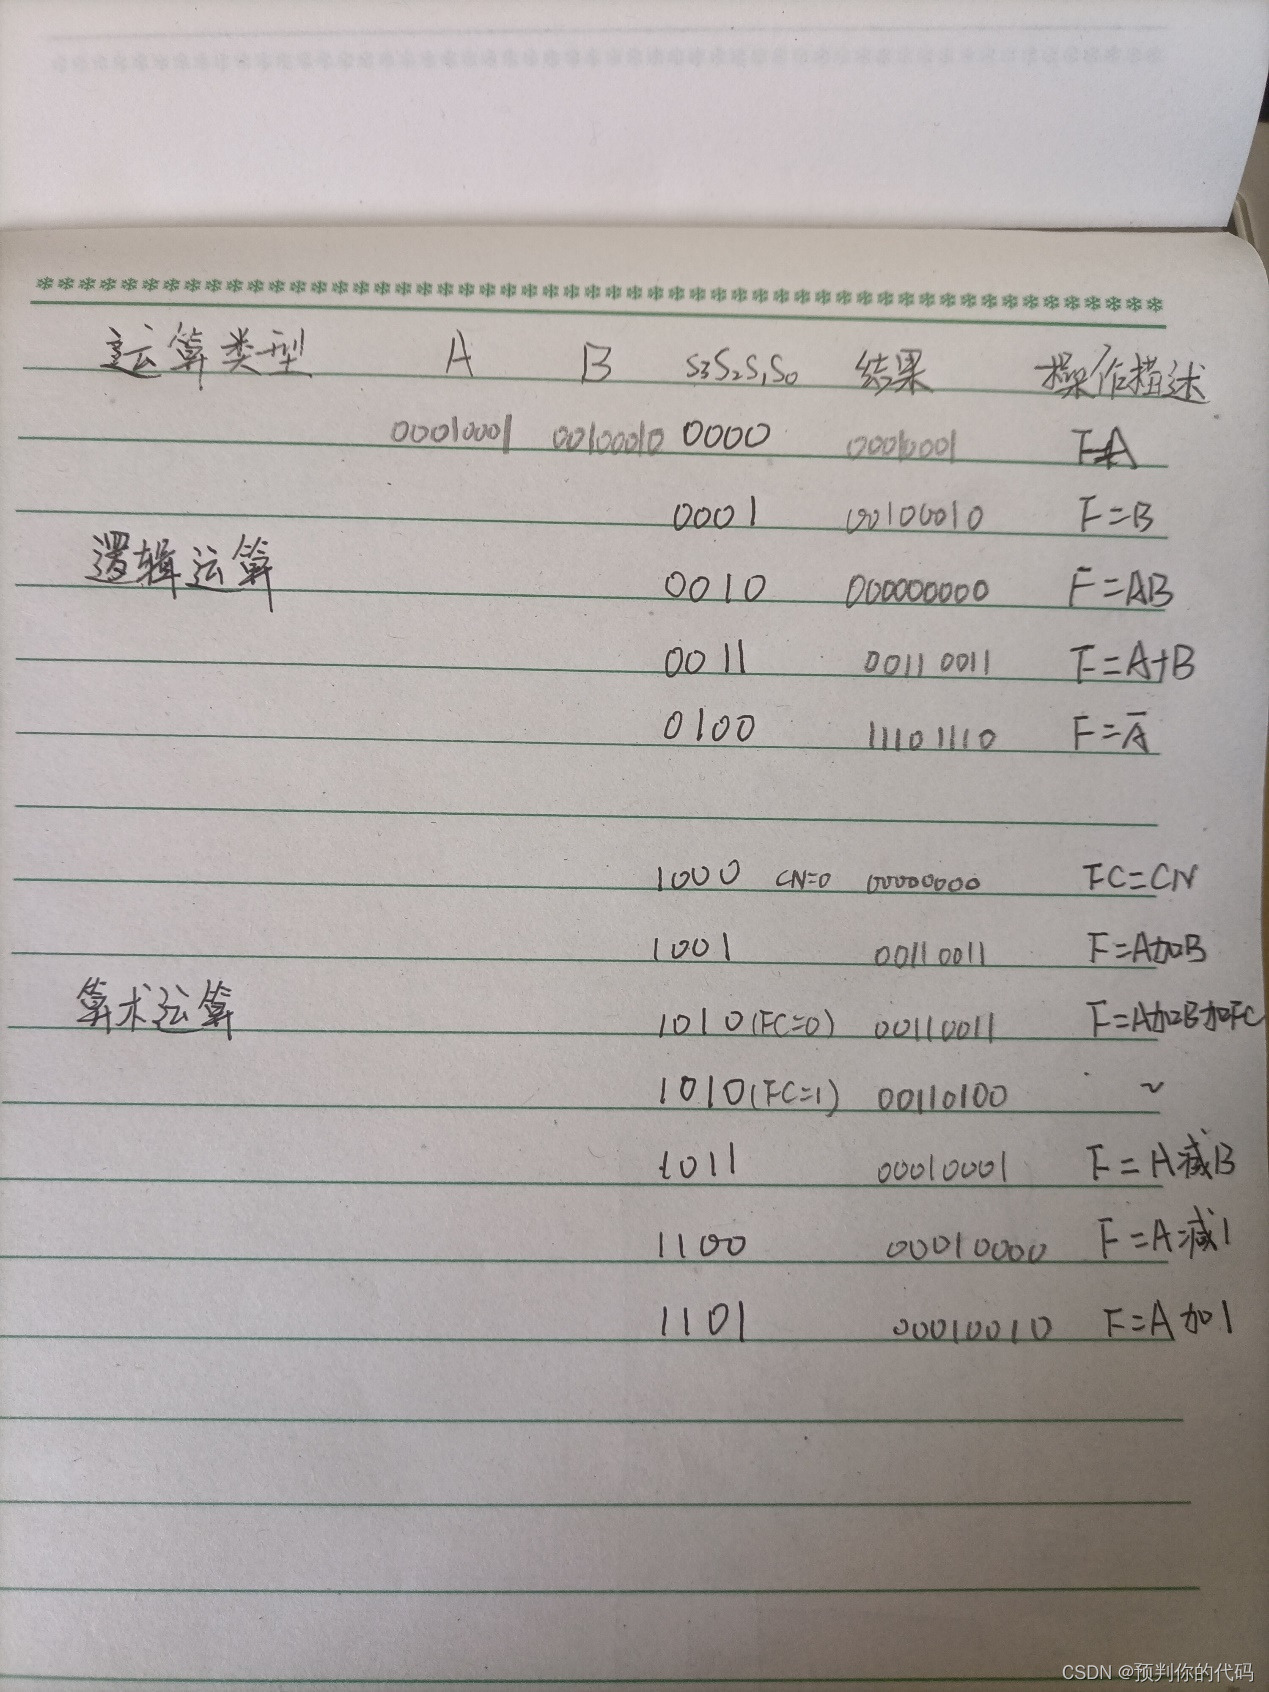 运算类型 A B S3S2S1S0 结果 操作描述
00010001 00100010 0000 00010001 F=A
0001 00100010 F=B
逻辑运算
0010 000000000 F=AB
0011 00110011 F=A+B
0100 11101110 F=Ā
1000 CN=0 00000000 FC=CN
1001 00110011 F=A加B
算术运算
1010(FC=0) 00110011 F=A加B加FC
1010(FC=1) 00110100 ~
1011 00010001 F=A减B
1100 00010000 F=A减1
1101 00010010 F=A加1
CSDN @预判你的代码